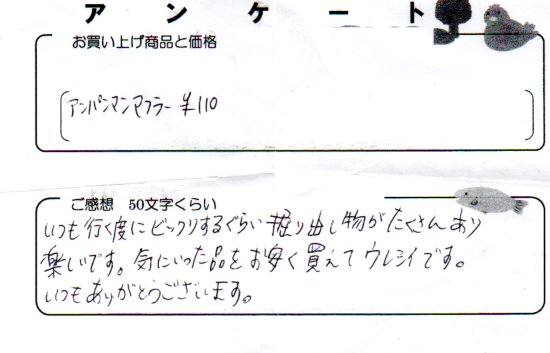 アンケート
お買い上げ商品と価格
アンパンマンマフラー ¥110
ご感想 50文字くらい
いつも行く度にビックリするぐらい掘り出し物がたくさんあり
楽しいです。気にいった品をお安く買えてウレシイです。
いつもありがとうございます。